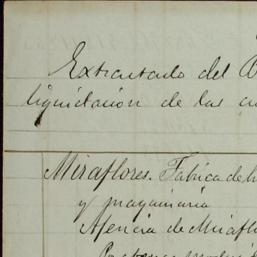 Extractado del
liquidación de las
Miraflores. Fabrica de h
y maquinaria
Agencia de Mirafl